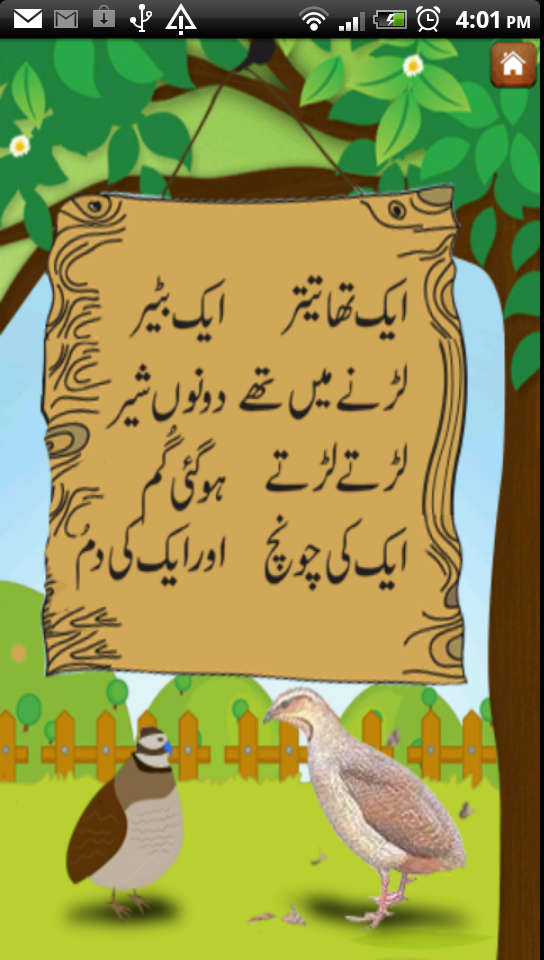 4:01 PM
ایک تھا تیتر ایک بٹیر
لڑنے میں تھے دونوں شیر
لڑتے لڑتے ہوگئی گُم
ایک کی چونچ اور ایک کی دمُ